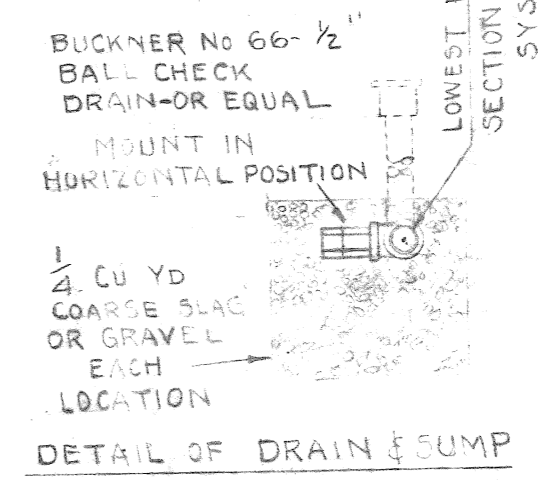 BUCKNER No 66-½"
BALL CHECK
DRAIN-OR EQUAL
MOUNT IN
HORIZONTAL POSITION
¼ CU YD
COARSE SLAG
OR GRAVEL
EACH
LOCATION
LOWEST
SECTION
SYS
DETAIL OF DRAIN & SUMP